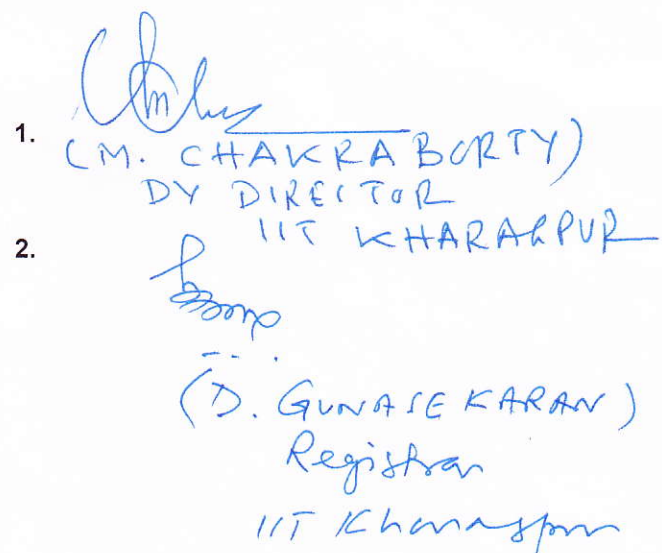 1.
(M. CHAKRABORTY)
DY DIRECTOR
IIT KHARAGPUR
2.
(D. GUNASEKARAN)
Registrar
IIT Kharagpur